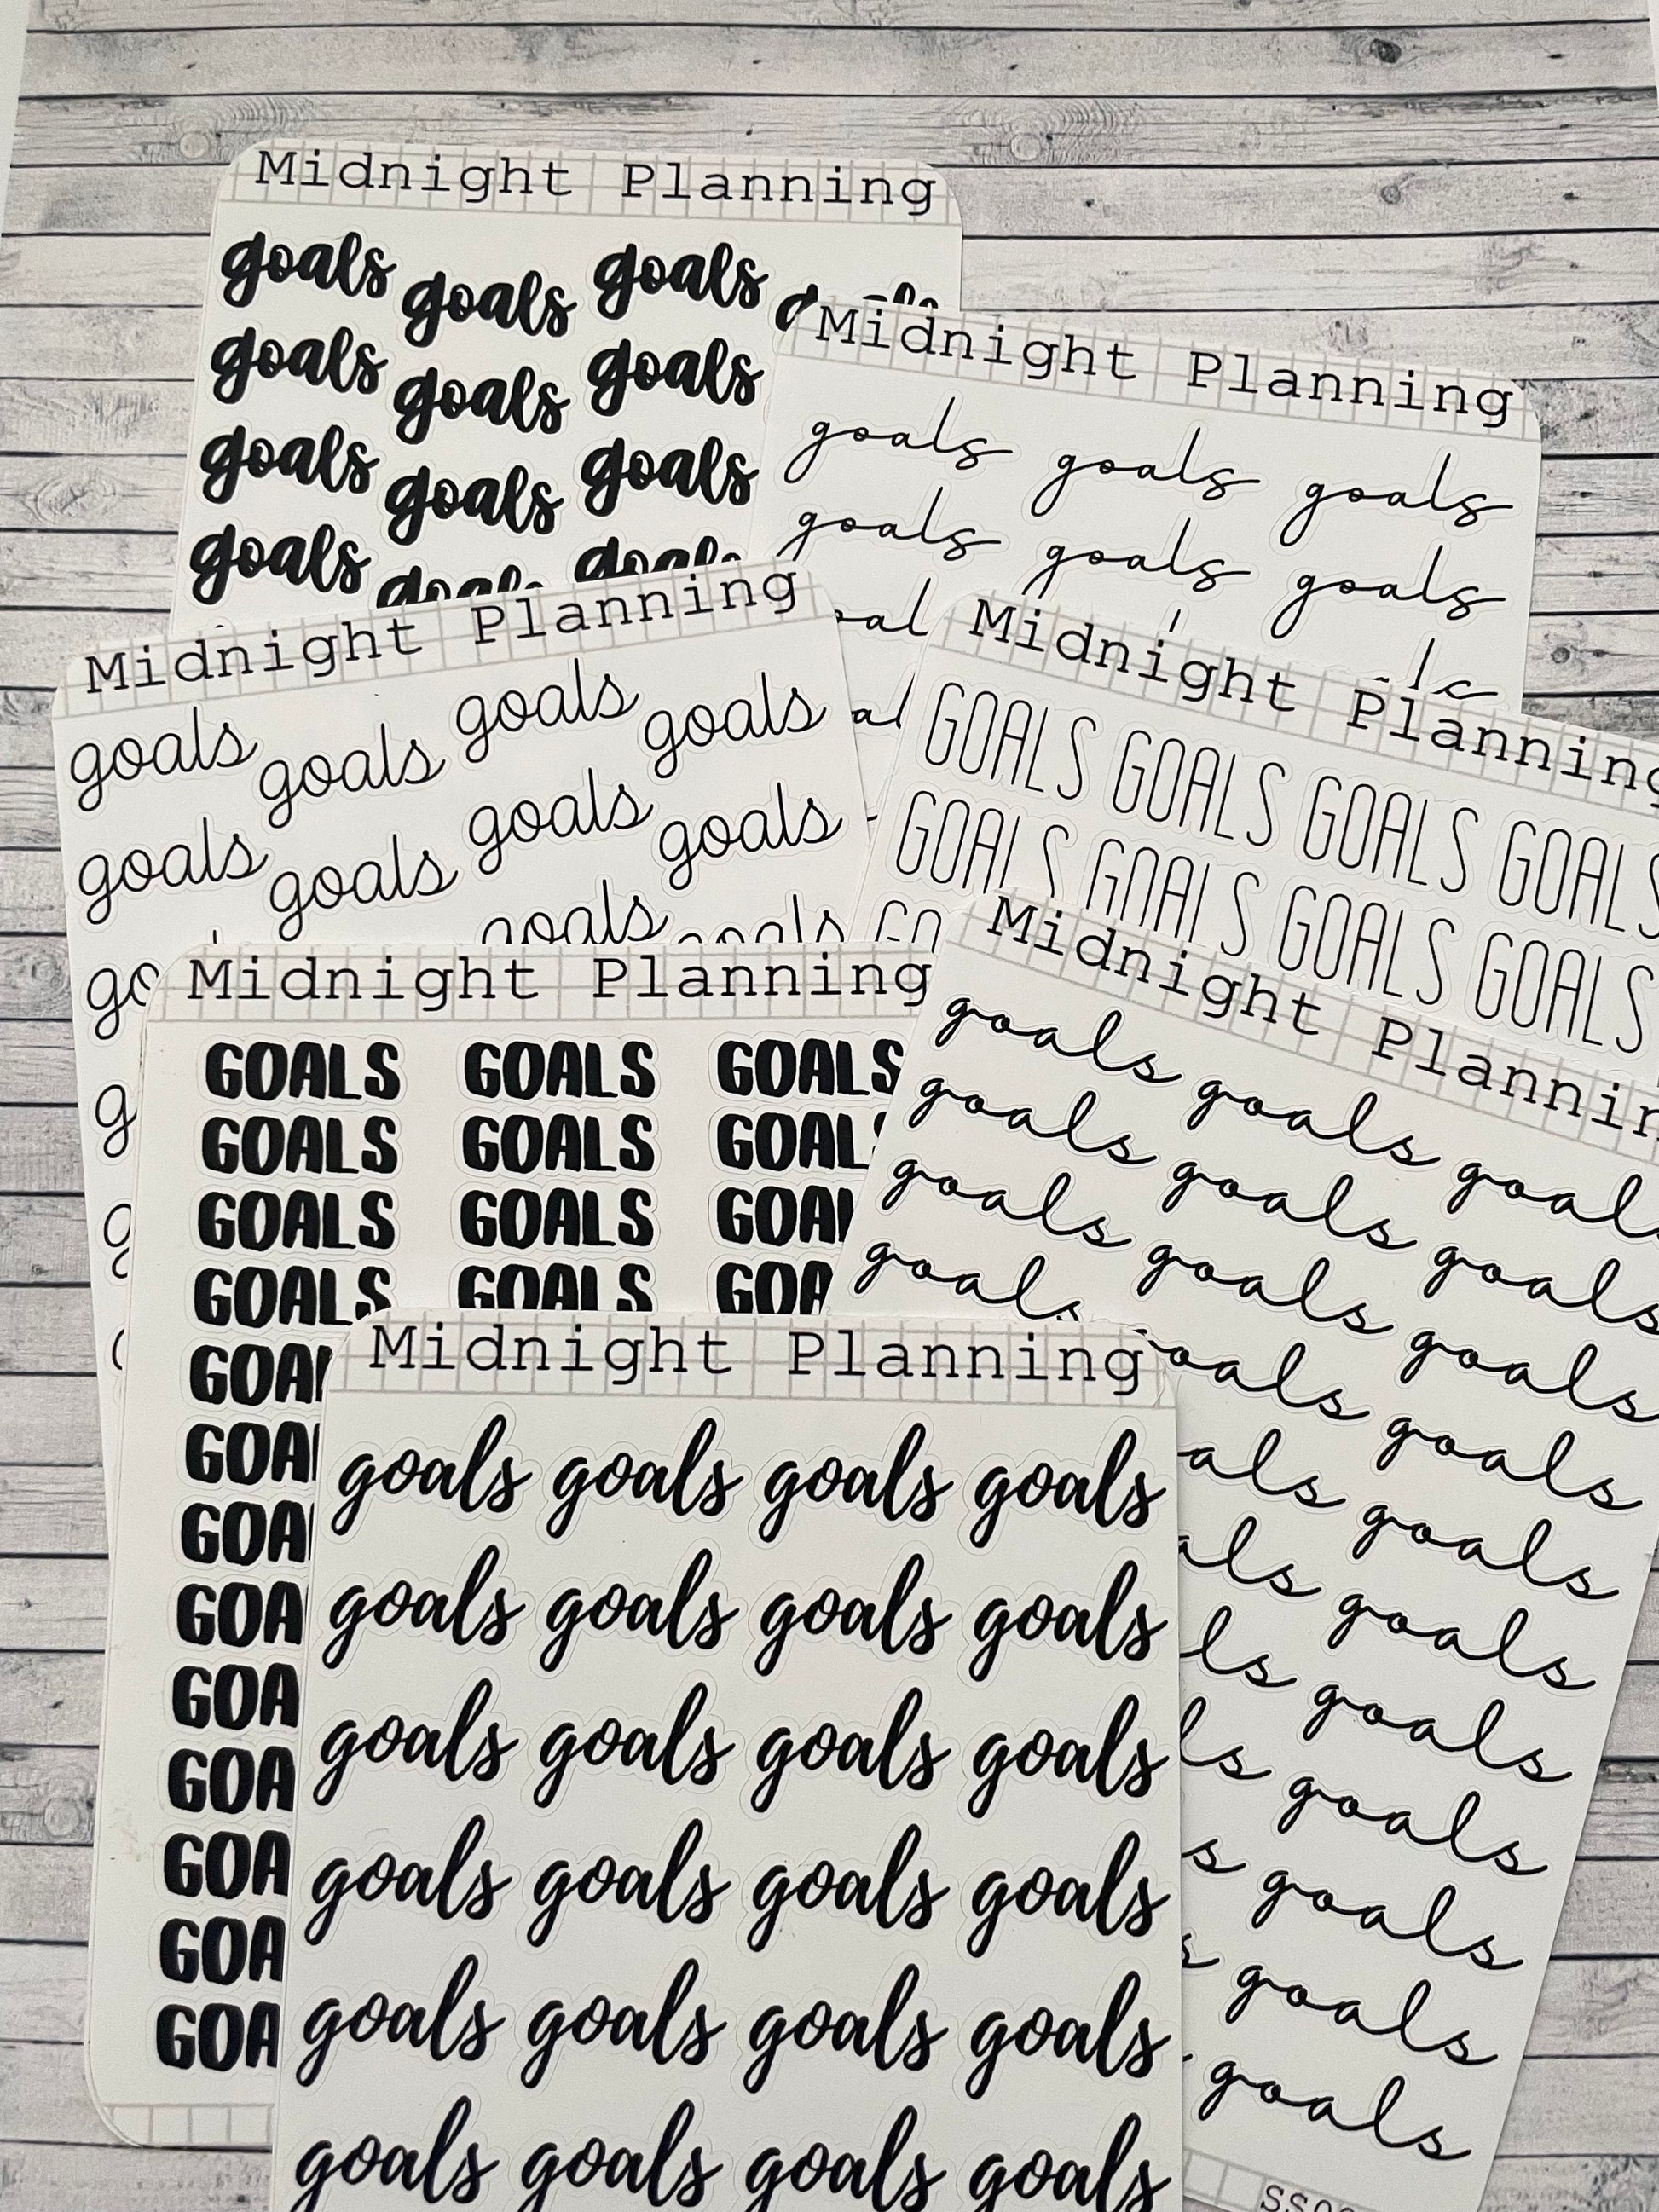 Midnight Planning
goals goals goals
goals goals goals
goals goals goals
goals
Midnight Planning
goals goals goals
goals goals goals
Midnight Planning
goals goals goals goals
goals goals goals goals
goals
Midnight Planning
GOALS GOALS GOALS GOALS
GOALS GOALS GOALS GOALS
Midnight Planning
GOALS GOALS GOALS
GOALS GOALS
GOALS GOALS
GOALS GOALS
Midnight
goals goals
goals goals goals
goals goals goals
goals goals
goals
goals
goals
goals
goals
goals
goals
goals
Midnight Planning
goals goals goals goals
goals goals goals goals
goals goals goals goals
goals goals goals goals
goals goals goals goals
goals goals goals goals